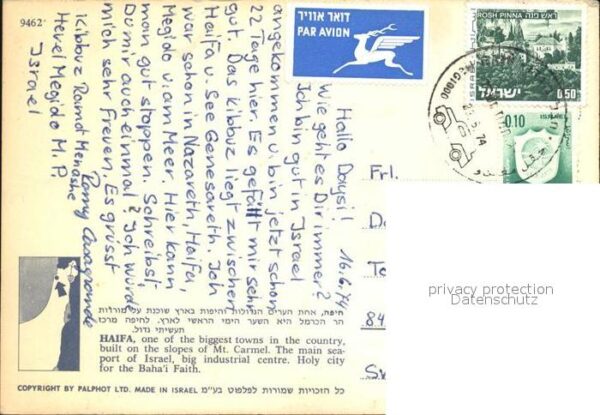 9462
דואר אוויר
PAR AVION
ROSH PINNA ראש פנה
ישראל
0.50
0.10
ISRAEL
MEGIDDO
74
16.6.74
Hallo Daysi!
Wie geht es Dir immer?
Ich bin gut in Israel
angekommen u. bin jetzt schon
22 Tage hier. Es gefällt mir sehr
gut. Das Kibbuz liegt zwischen
Haifa u. See Genesareth. Ich
war schon in Nazareth, Haifa
Megido u. am Meer. Hier kann
man gut stoppen. Schreibst
Du mir auch einmal? Ich würde
mich sehr freuen. Es grüsst
Romy Casagrande
Kibbuz Ramot Menashe
Hevel Megido M.P.
Israel
Frl.
Da
To
84
Sw
privacy protection
Datenschutz
חיפה, אחת הערים הגדולות והיפות בארץ שוכנת על מורדות
הר הכרמל היא השער הימי הראשי לארץ. לחיפה מרכז
תעשיתי גדול.
HAIFA, one of the biggest towns in the country,
built on the slopes of Mt. Carmel. The main sea-
port of Israel, big industrial centre. Holy city
for the Baha'i Faith.
COPYRIGHT BY PALPHOT LTD. MADE IN ISRAEL כל הזכויות שמורות לפלפוט בע"מ